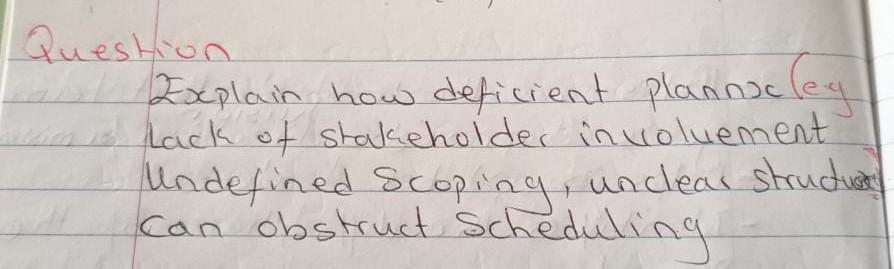 Question
Explain how deficient planning (eg
Lack of stakeholder involvement
Undefined Scoping, unclear structure)
Can obstruct Scheduling